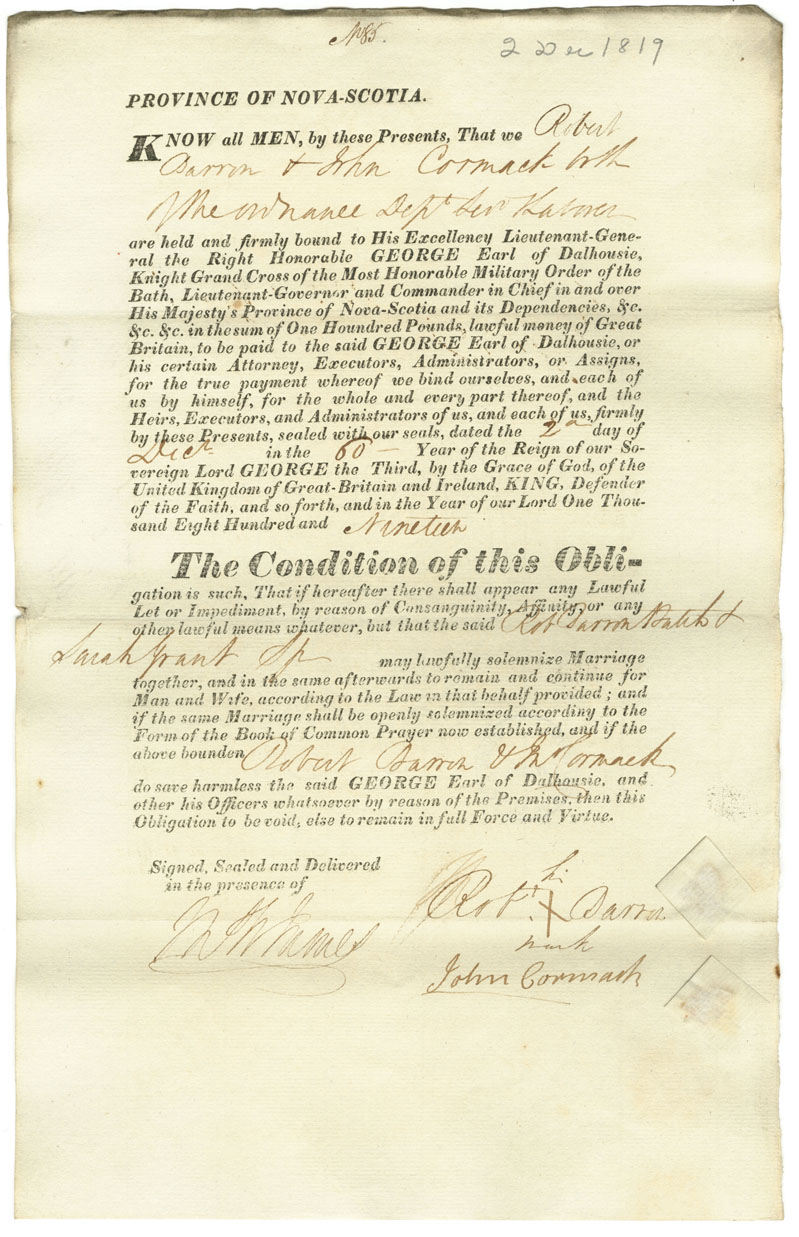 No 85.
2 Dec 1819
PROVINCE OF NOVA-SCOTIA.
KNOW all MEN, by these Presents, That we Robert
Darron & John Cormack both
of the Ordnance Dept
are held and firmly bound to His Excellency Lieutenant-Gene-
ral the Right Honorable GEORGE Earl of Dalhousie,
Knight Grand Cross of the Most Honorable Military Order of the
Bath, Lieutenant-Governor and Commander in Chief in and over
His Majesty's Province of Nova-Scotia and its Dependencies, &c.
&c. &c. in the sum of One Houndred Pounds, lawful money of Great
Britain, to be paid to the said GEORGE Earl of Dalhousie, or
his certain Attorney, Executors, Administrators, or Assigns,
for the true payment whereof we bind ourselves, and each of
us by himself, for the whole and every part thereof, and the
Heirs, Executors, and Administrators of us, and each of us, firmly
by these Presents, sealed with our seals, dated the 2d day of
Decr in the 60 — Year of the Reign of our So-
vereign Lord GEORGE the Third, by the Grace of God, of the
United Kingdom of Great-Britain and Ireland, KING, Defender
of the Faith, and so forth, and in the Year of our Lord One Thou-
sand Eight Hundred and Nineteen
The Condition of this Obli-
gation is such, That if hereafter there shall appear any Lawful
Let or Impediment, by reason of Consanguinity, Affinity, or any
other lawful means whatever, but that the said Robt Darron Batch &
Sarah Grant Sp may lawfully solemnize Marriage
together, and in the same afterwards to remain and continue for
Man and Wife, according to the Law in that behalf provided; and
if the same Marriage shall be openly solemnized accordiny to the
Form of the Book of Common Prayer now established, and if the
above bounden Robert Darron & Jn Cormack
do save harmless the said GEORGE Earl of Dalhousie, and
other his Officers whatsoever by reason of the Premises, then this
Obligation to be void; else to remain in full Force and Virtue.
Signed, Sealed and Delivered
in the presence of
his
Robt X Darron
mark
John Cormack